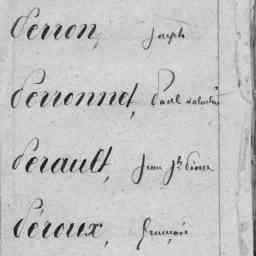 Perron, Joseph
Perronnet, Paul Valentin
Perault, Jean Jh Pierre
Péroux, François